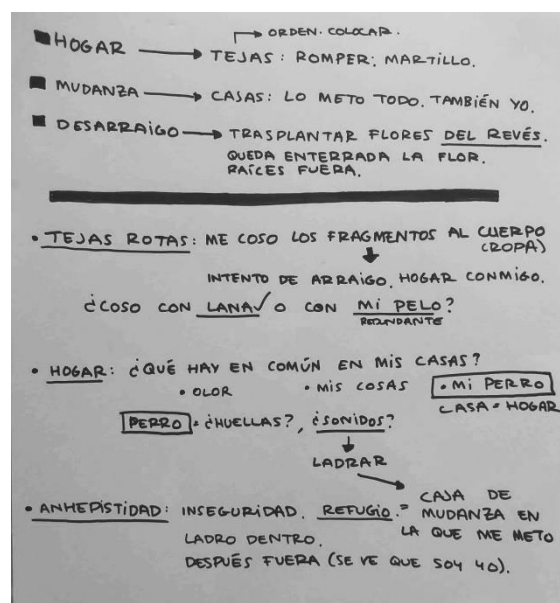 → ORDEN. COLOCAR.
HOGAR → TEJAS: ROMPER: MARTILLO.
MUDANZA → CASAS: LO METO TODO. TAMBIÉN YO.
DESARRAIGO → TRASPLANTAR FLORES DEL REVÉS.
QUEDA ENTERRADA LA FLOR.
RAÍCES FUERA.
• TEJAS ROTAS: ME COSO LOS FRAGMENTOS AL CUERPO
(ROPA)
INTENTO DE ARRAIGO. HOGAR CONMIGO.
¿COSO CON LANA✓ O CON MI PELO?
REDUNDANTE
• HOGAR: ¿QUÉ HAY EN COMÚN EN MIS CASAS?
• OLOR • MIS COSAS • MI PERRO
CASA = HOGAR
PERRO • ¿HUELLAS?, ¿SONIDOS?
LADRAR
• ANHEPISTIDAD: INSEGURIDAD. REFUGIO. = CAJA DE
MUDANZA EN
LA QUE ME METO
LADRO DENTRO.
DESPUÉS FUERA (SE VE QUE SOY YO).